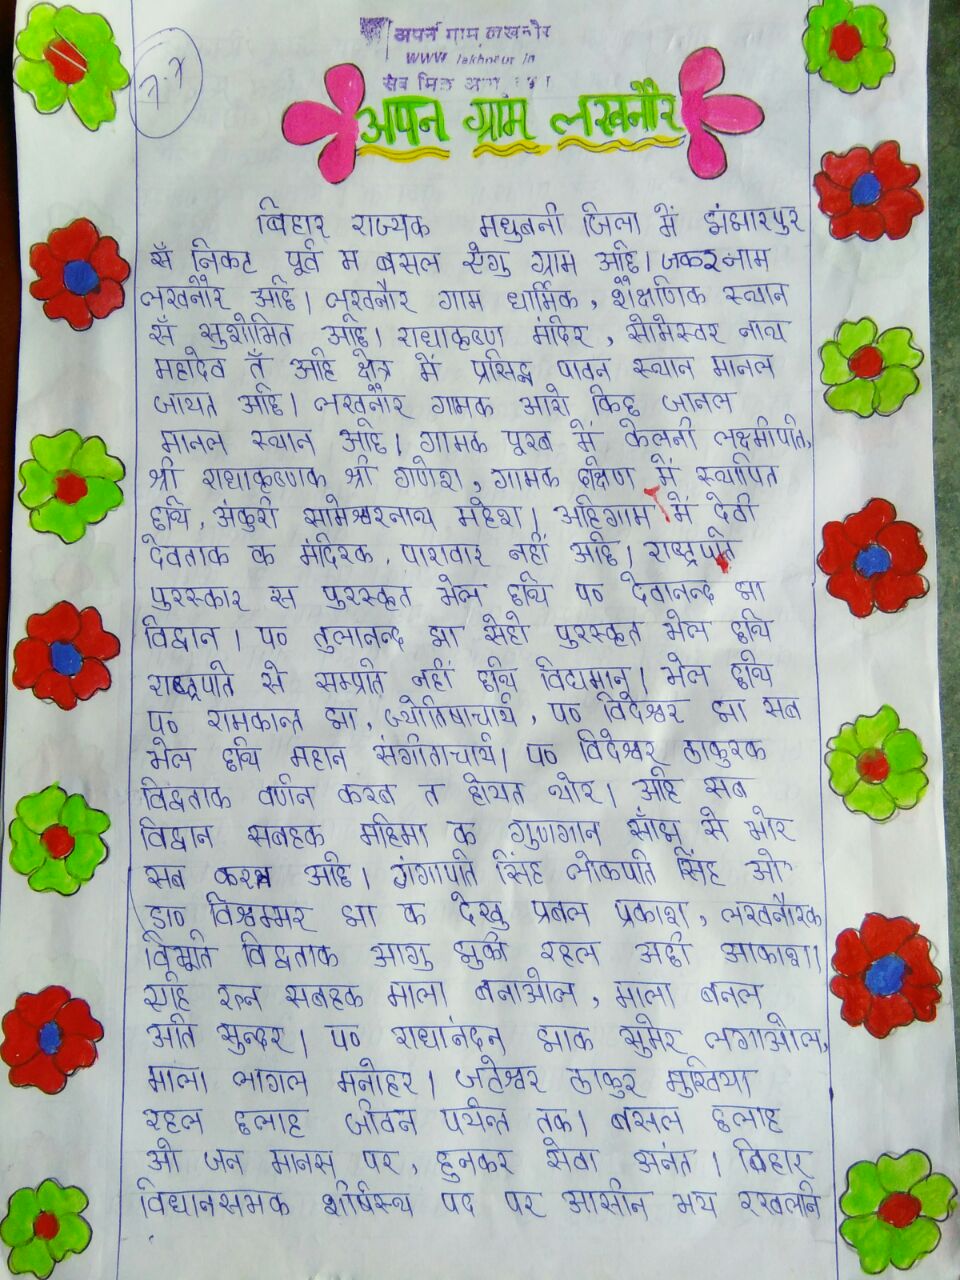 अपन गाम लखनौर
www.lakhnaur.in
अपन ग्राम लखनौर
बिहार राज्यक मधुबनी जिला में झंझारपुर
सँ निकट पूर्व म बसल एगु ग्राम अछि। जकर नाम
लखनौर अछि। लखनौर गाम धार्मिक, शैक्षणिक स्थान
सँ सुशोभित अछि। राधाकृष्ण मंदिर, सोमेस्वर नाथ
महादेव तँ अहि क्षेत्र में प्रसिद्ध पावन स्थान मानल
जायत अछि। लखनौर गामक आरो किछ जानल
मानल स्थान अछि। गामक पूरब में केलनी लक्ष्मीपति,
श्री राधाकृष्णक श्री गणेश, गामक दक्षिण में स्थापित
छथि, अंकुरी सोमेश्वरनाथ महेश। अहिगाम में देवी
देवताक क मंदिरक, पारावार नहीं अछि। राष्ट्रपति
पुरस्कार स पुरस्कृत भेल छथि प० देवानन्द झा
विद्वान। प० तुलानन्द झा सेहो पुरस्कृत भेल छथि
राष्ट्रपति से सम्प्रति नहीं छथि विद्यमान। भेल छथि
प० रामकान्त झा, ज्योतिषाचार्य, प० विदेश्वर झा सब
भेल छथि महान संगीताचार्य। प० विदेश्वर ठाकुरक
विद्वताक वर्णन करब त होयत थोर। अहि सब
विद्वान सबहक महिमा क गुणगान साँझ से भोर
सब करत अछि। गंगापति सिंह लोकपति सिंह ओ
डा० विश्वम्भर झा क देखु प्रबल प्रकाश, लखनौरक
विभूति विद्वताक आगु झुकी रहल अछी आकाश।
एहि रत्न सबहक माला बनाओल, माला बनल
अति सुन्दर। प० राधानंदन झाक सुमेर लगाओल,
माला लागल मनोहर। जटेश्वर ठाकुर मुखिया
रहल छलाह जीवन पर्यन्त तक। बसल छलाह
ओ जन मानस पर, हुनकर सेवा अनंत। बिहार
विधानसभाक शीर्षस्थ पद पर आसीन भय रखलनि